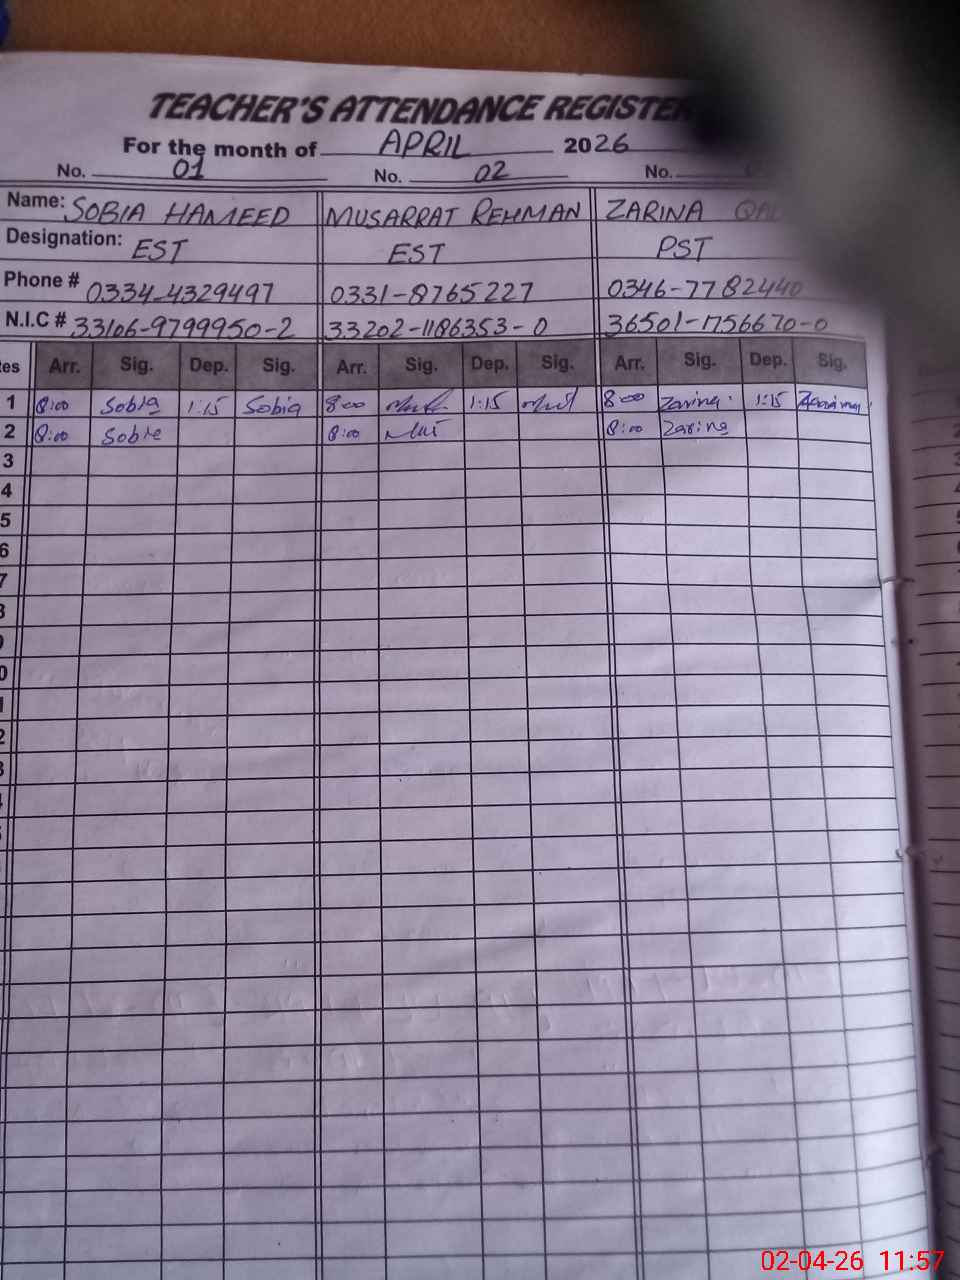 TEACHER'S ATTENDANCE REGISTER
For the month of APRIL 2026
No. 01 No. 02 No.
Name: SOBIA HAMEED MUSARRAT REHMAN ZARINA
Designation: EST EST PST
Phone # 0334-4329497 0331-8765227 0346-7782440
N.I.C # 33106-9799950-2 33202-1186353-0 36501-1756670-0
Arr. Sig. Dep. Sig. Arr. Sig. Dep. Sig. Arr. Sig. Dep. Sig.
1 8:00 Sobia 1:15 Sobia 8:00 1:15 8:00 Zarina 1:15 Zarina
2 8:00 Sobia 8:00 8:00 Zarina
3
4
5
6
7
02-04-26 11:57